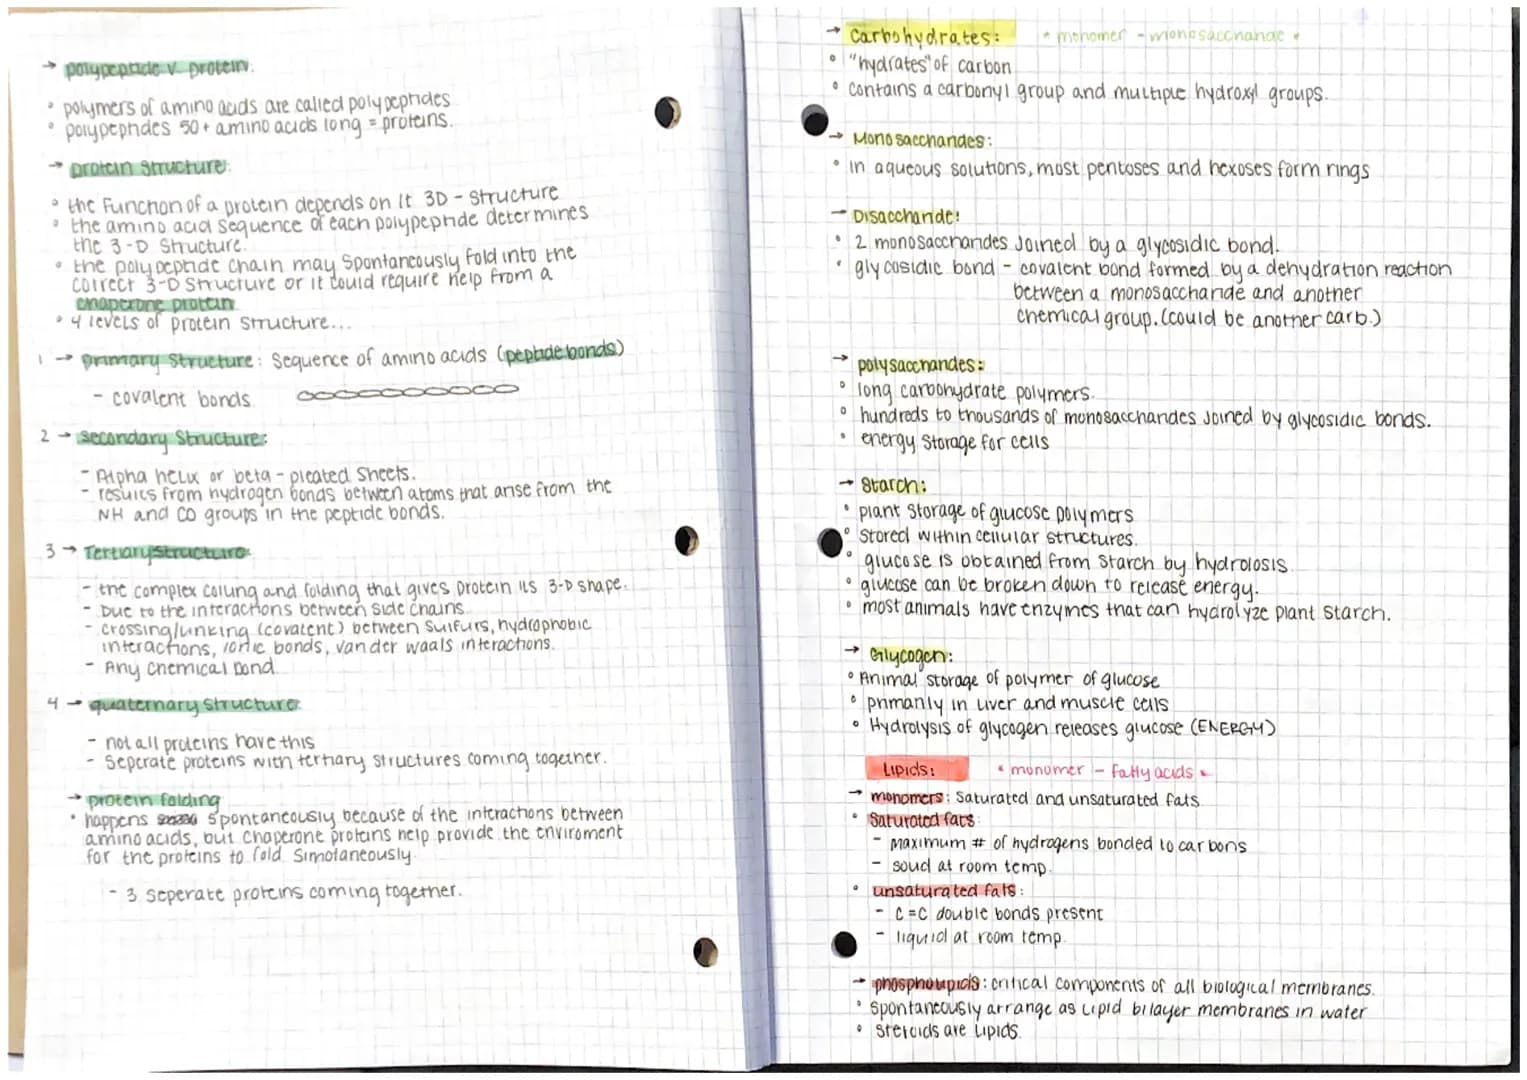 → polypeptide v. protein:
• polymers of amino acids are called polypeptides
• polypeptides 50+ amino acids long = proteins.
→ protein structure:
• the function of a protein depends on it 3D - structure
• the amino acid sequence of each polypeptide determines
the 3-D structure.
• the polypeptide chain may spontaneously fold into the
correct 3-D structure or it could require help from a
chaperone protein
• 4 levels of protein structure...
1 → primary structure: sequence of amino acids (peptide bonds)
- covalent bonds
2 → secondary structure:
- Alpha helix or beta-pleated sheets.
- results from hydrogen bonds between atoms that arise from the
NH and CO groups in the peptide bonds.
3 → Tertiary structure:
- the complex coiling and folding that gives protein its 3-D shape.
- Due to the interactions between side chains
- crossing/linking (covalent) between sulfurs, hydrophobic
interactions, ionic bonds, van der waals interactions.
- Any chemical bond
4 → quaternary structure:
- not all proteins have this
- Seperate proteins with tertiary structures coming together.
→ protein folding
• happens spontaneously because of the interactions between
amino acids, but chaperone proteins help provide the enviroment
for the proteins to fold. Simotaneously.
- 3 seperate proteins coming together.
→ Carbohydrates: • monomer - monosaccharide •
• "hydrates" of carbon
• contains a carbonyl group and multiple hydroxyl groups.
→ Monosaccharides:
• in aqueous solutions, most pentoses and hexoses form rings
→ Disaccharide:
• 2 monosaccharides joined by a glycosidic bond.
• glycosidic bond - covalent bond formed by a dehydration reaction
between a monosaccharide and another
chemical group. (could be another carb.)
→ polysaccharides:
• long carbohydrate polymers.
• hundreds to thousands of monosaccharides joined by glycosidic bonds.
• energy storage for cells
→ Starch:
• plant storage of glucose polymers
• stored within cellular structures.
• glucose is obtained from starch by hydrolosis
• glucose can be broken down to release energy.
• most animals have enzymes that can hydrolyze plant starch.
→ Glycogen:
• Animal storage of polymer of glucose
• primarily in liver and muscle cells
• Hydrolysis of glycogen releases glucose (ENERGY)
Lipids: • monomer - fatty acids •
→ monomers: saturated and unsaturated fats
• saturated fats:
- maximum # of hydrogens bonded to carbons
- solid at room temp.
• unsaturated fats:
- C=C double bonds present
- liquid at room temp.
→ phospholipids: critical components of all biological membranes.
• spontaneously arrange as lipid bilayer membranes in water
• steroids are lipids.